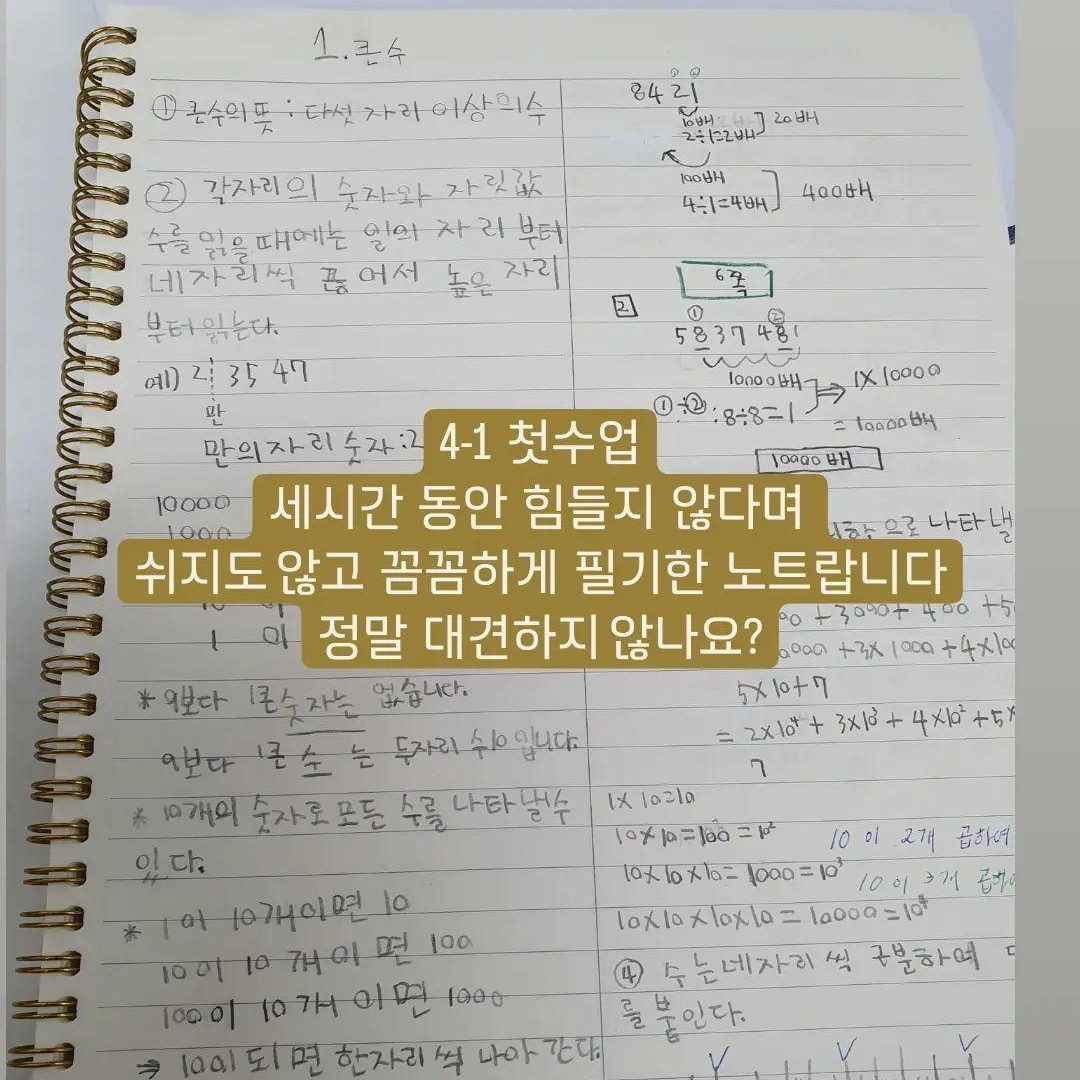 1. 큰 수
① 큰수의 뜻 : 다섯 자리 이상의 수
② 각자리의 숫자와 자릿값
수를 읽을 때에는 일의 자리 부터
네자리씩 끊어서 높은 자리
부터 읽는다.
예) 2 35 47
만
만의 자리 숫자:2
10000
1000
1 이
* 9보다 1큰 숫자는 없습니다.
9보다 1큰 수 는 두자리 수10입니다.
* 10개의 숫자로 모든 수를 나타낼 수
있다.
* 1이 10개이면 10
10이 10개이면 100
100이 10개이면 1000
→ 10이 되면 한자리씩 나아간다.
① ②
8421
10배
2÷1=2배
20배
100배
4÷1=4배
400배
6쪽
2
① ②
5837481
10000배
①÷② : 8÷8=1
1×10000
=10000배
10000배
으로 나타낼
+3000+ 400 +5
+3×1000+4×100
5×10+7
= 2×10⁴ + 3×10³ + 4×10² +5×
7
1×10=10
10×10=100=10²
10 이 2개 곱하여
10×10×10=1000=10³
10 이 3개
10×10×10×10=10000=10⁴
④ 수는 네자리씩 구분하여
를 붙인다.
4-1 첫수업
세시간 동안 힘들지 않다며
쉬지도 않고 꼼꼼하게 필기한 노트랍니다
정말 대견하지 않나요?